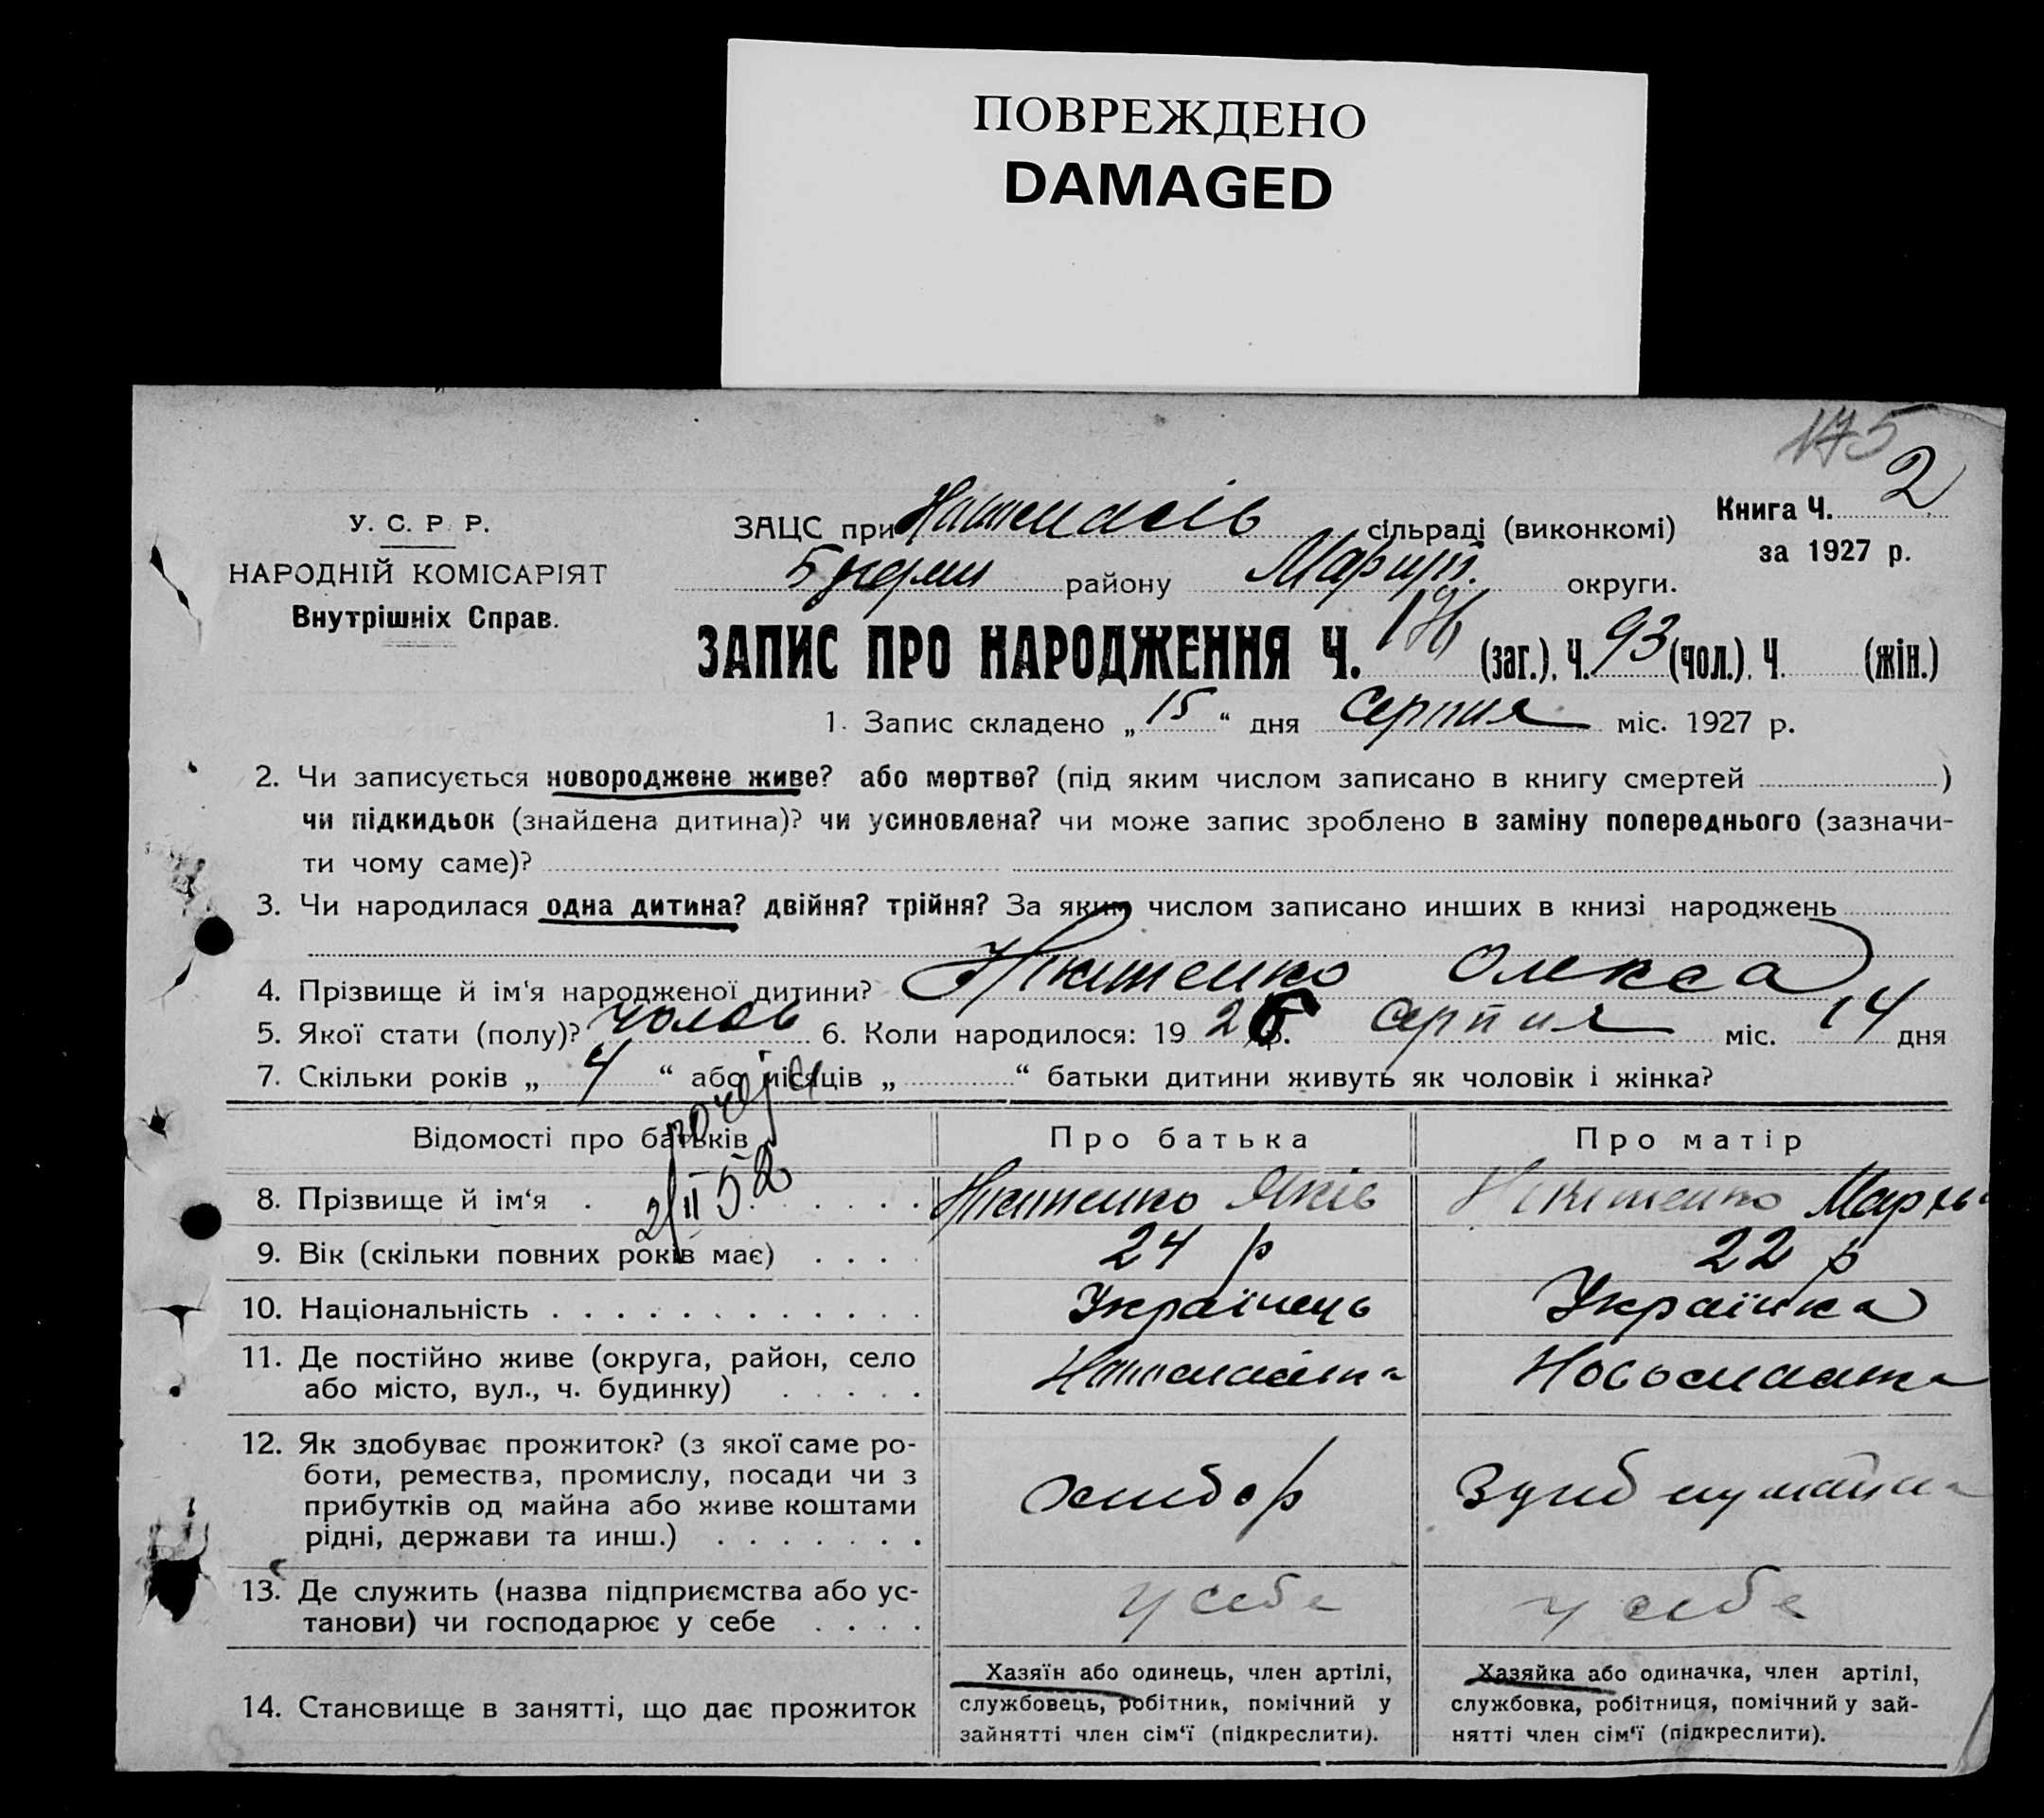 ПОВРЕЖДЕНО
DAMAGED
175
2
У. С. Р. Р.
НАРОДНІЙ КОМІСАРІЯТ
Внутрішніх Справ.
ЗАЦС при сільраді (виконкомі)
району Маріуп. округи.
Книга Ч.
за 1927 р.
ЗАПИС ПРО НАРОДЖЕННЯ Ч. (заг.), Ч. 93 (чол.), Ч. (жін.)
1. Запис складено „ 15 “ дня серпня міс. 1927 р.
2. Чи записується новороджене живе? або мертве? (під яким числом записано в книгу смертей )
чи підкидьок (знайдена дитина)? чи усиновлена? чи може запис зроблено в заміну попереднього (зазначи-
ти чому саме)?
3. Чи народилася одна дитина? двійня? трійня? За яким числом записано инших в книзі народжень
4. Прізвище й ім'я народженої дитини? Нікитенко Олекса
5. Якої стати (полу)? чолов 6. Коли народилося: 19 р. серпня міс. 14 дня
7. Скільки років „ 4 “ або місяців „ “ батьки дитини живуть як чоловік і жінка?
Відомості про батьків
Про батька
Про матір
2/II 52
8. Прізвище й ім'я . . . . . . . Нікитенко Яків Нікитенко
9. Вік (скільки повних років має) . . . . 24 р 22 р
10. Національність . . . . . . . . . . . . . . Українець Українка
11. Де постійно живе (округа, район, село
або місто, вул., ч. будинку) . . . . .
12. Як здобуває прожиток? (з якої саме ро-
боти, ремества, промислу, посади чи з
прибутків од майна або живе коштами
рідні, держави та инш.) . . . . . . .
хлібор
13. Де служить (назва підприємства або ус-
танови) чи господарює у себе . . . .
у себе
у себе
14. Становище в занятті, що дає прожиток
Хазяїн або одинець, член артілі,
службовець, робітник, помічний у
зайнятті член сім'ї (підкреслити).
Хазяйка або одиначка, член артілі,
службовка, робітниця, помічний у зай-
нятті член сім'ї (підкреслити).